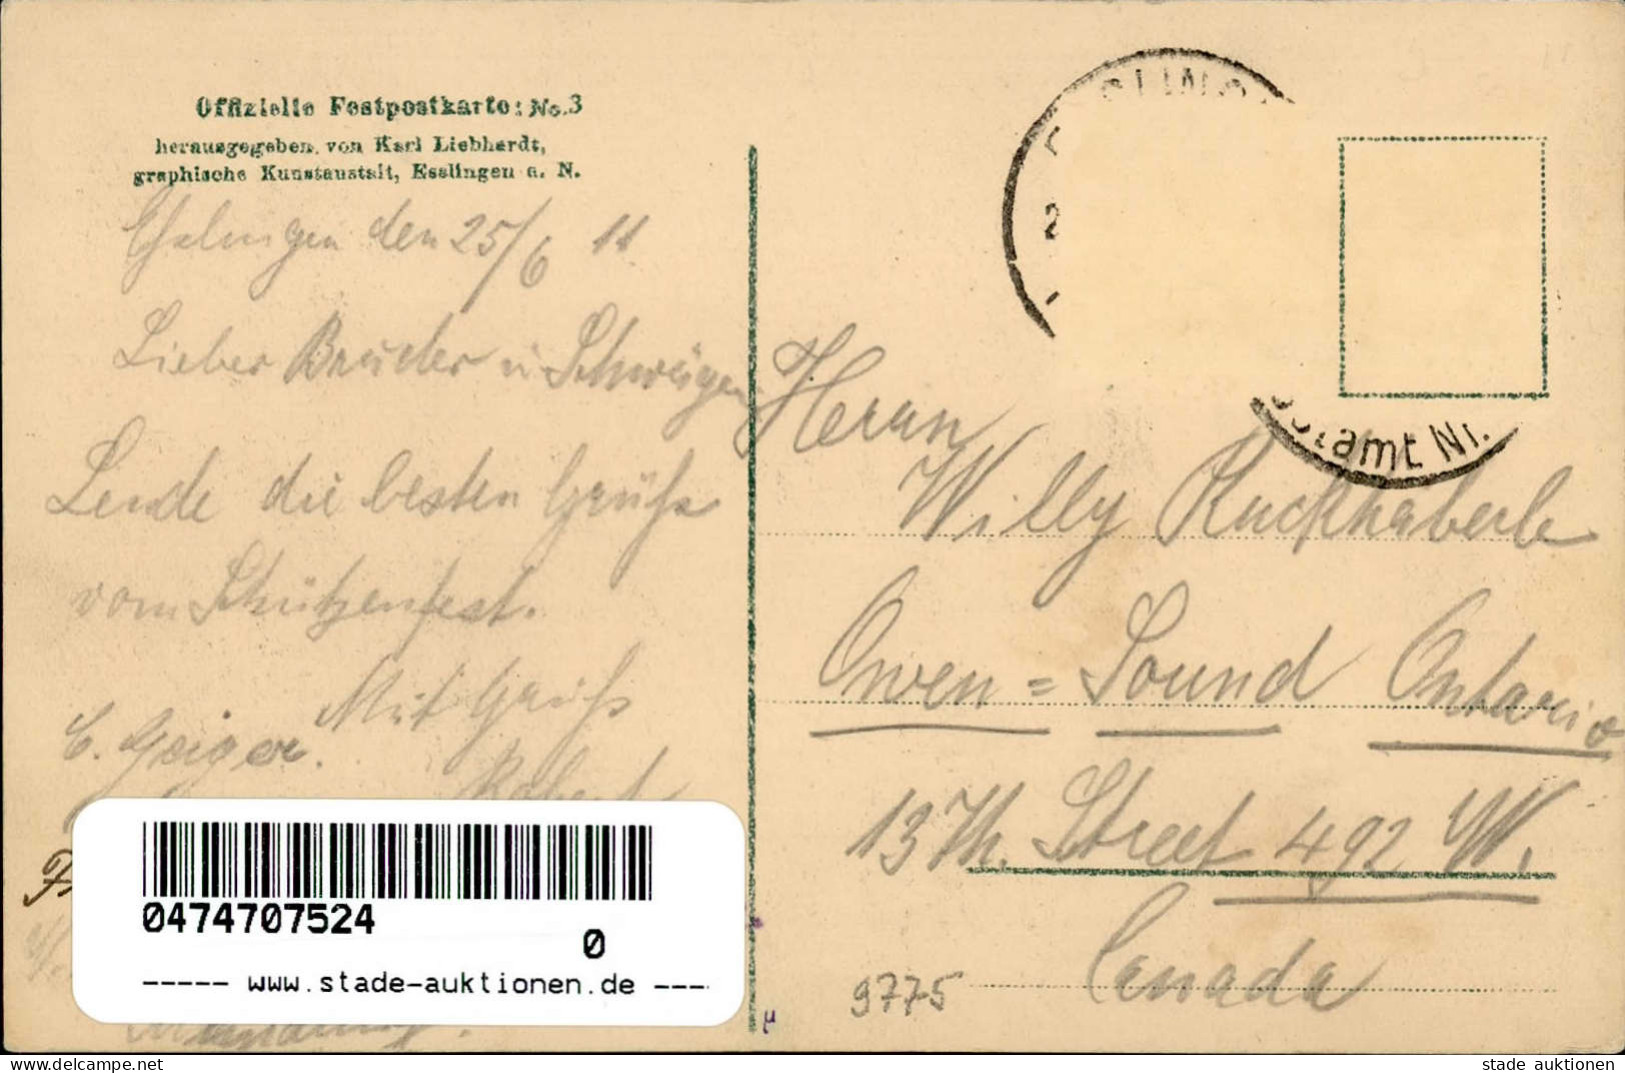 Offizielle Festpostkarte: No. 3
herausgegeben von Karl Liebhardt,
graphische Kunstanstalt, Esslingen a. N.
Esslingen den 25/6 11
Lieber Bruder u Schwägerin
Sende die besten Grüße
vom Schützenfest.
Mit Gruß
C. Geiger.
Robert
Herrn
Willy Ruckhaberle
Owen=Sound Ontario
13 Th. Street 492 W.
Canada
9775
stamt Nr.
0474707524
0
----- www.stade-auktionen.de ----
stade auktionen